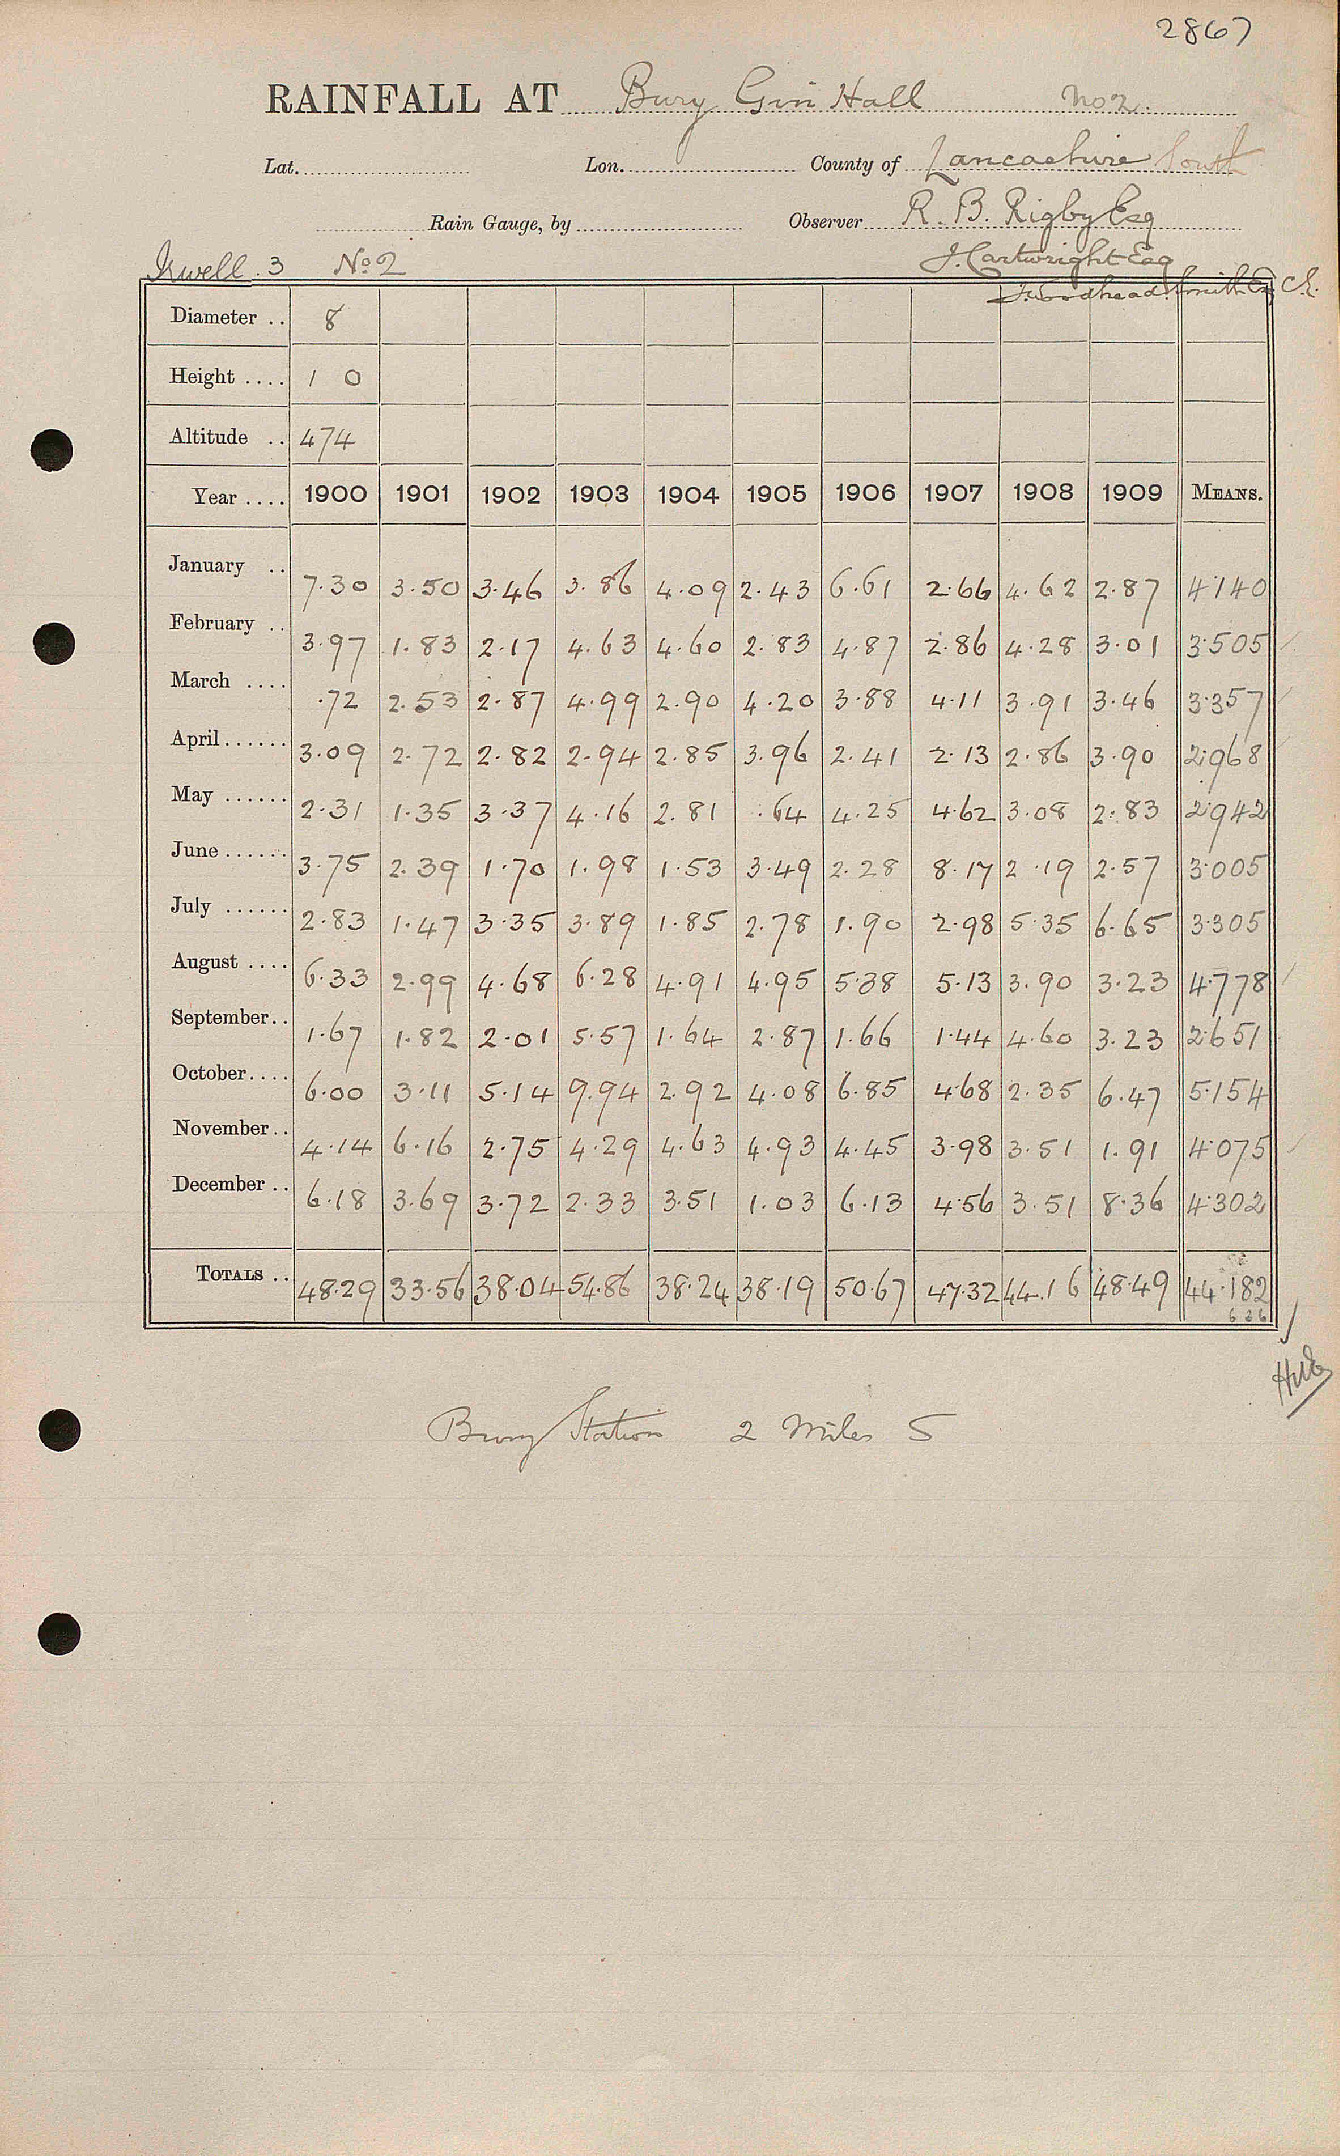 2867
RAINFALL AT Bury Gin Hall No 2.
Lat. Lon. County of Lancashire South
Rain Gauge, by Observer R. B. Rigby Esq
Irwell . 3 No. 2 J. Cartwright Esq
J. Woodhead Smith Esq C.E.
Diameter .. 8
Height .... 1 0
Altitude .. 474
Year .... 1900 1901 1902 1903 1904 1905 1906 1907 1908 1909 MEANS.
January .. 7.30 3.50 3.46 3.86 4.09 2.43 6.61 2.66 4.62 2.87 4.140
February .. 3.97 1.83 2.17 4.63 4.60 2.83 4.87 2.86 4.28 3.01 3.505
March .... .72 2.53 2.87 4.99 2.90 4.20 3.88 4.11 3.91 3.46 3.357
April...... 3.09 2.72 2.82 2.94 2.85 3.96 2.41 2.13 2.86 3.90 2.968
May ...... 2.31 1.35 3.37 4.16 2.81 .64 4.25 4.62 3.08 2.83 2.942
June...... 3.75 2.39 1.70 1.98 1.53 3.49 2.28 8.17 2.19 2.57 3.005
July ...... 2.83 1.47 3.35 3.89 1.85 2.78 1.90 2.98 5.35 6.65 3.305
August .... 6.33 2.99 4.68 6.28 4.91 4.95 5.38 5.13 3.90 3.23 4.778
September.. 1.67 1.82 2.01 5.57 1.64 2.87 1.66 1.44 4.60 3.23 2.651
October.... 6.00 3.11 5.14 9.94 2.92 4.08 6.85 4.68 2.35 6.47 5.154
November.. 4.14 6.16 2.75 4.29 4.63 4.93 4.45 3.98 3.51 1.91 4.075
December .. 6.18 3.69 3.72 2.33 3.51 1.03 6.13 4.56 3.51 8.36 4.302
TOTALS .. 48.29 33.56 38.04 54.86 38.24 38.19 50.67 47.32 44.16 48.49 44.182
Bury Station 2 Miles S